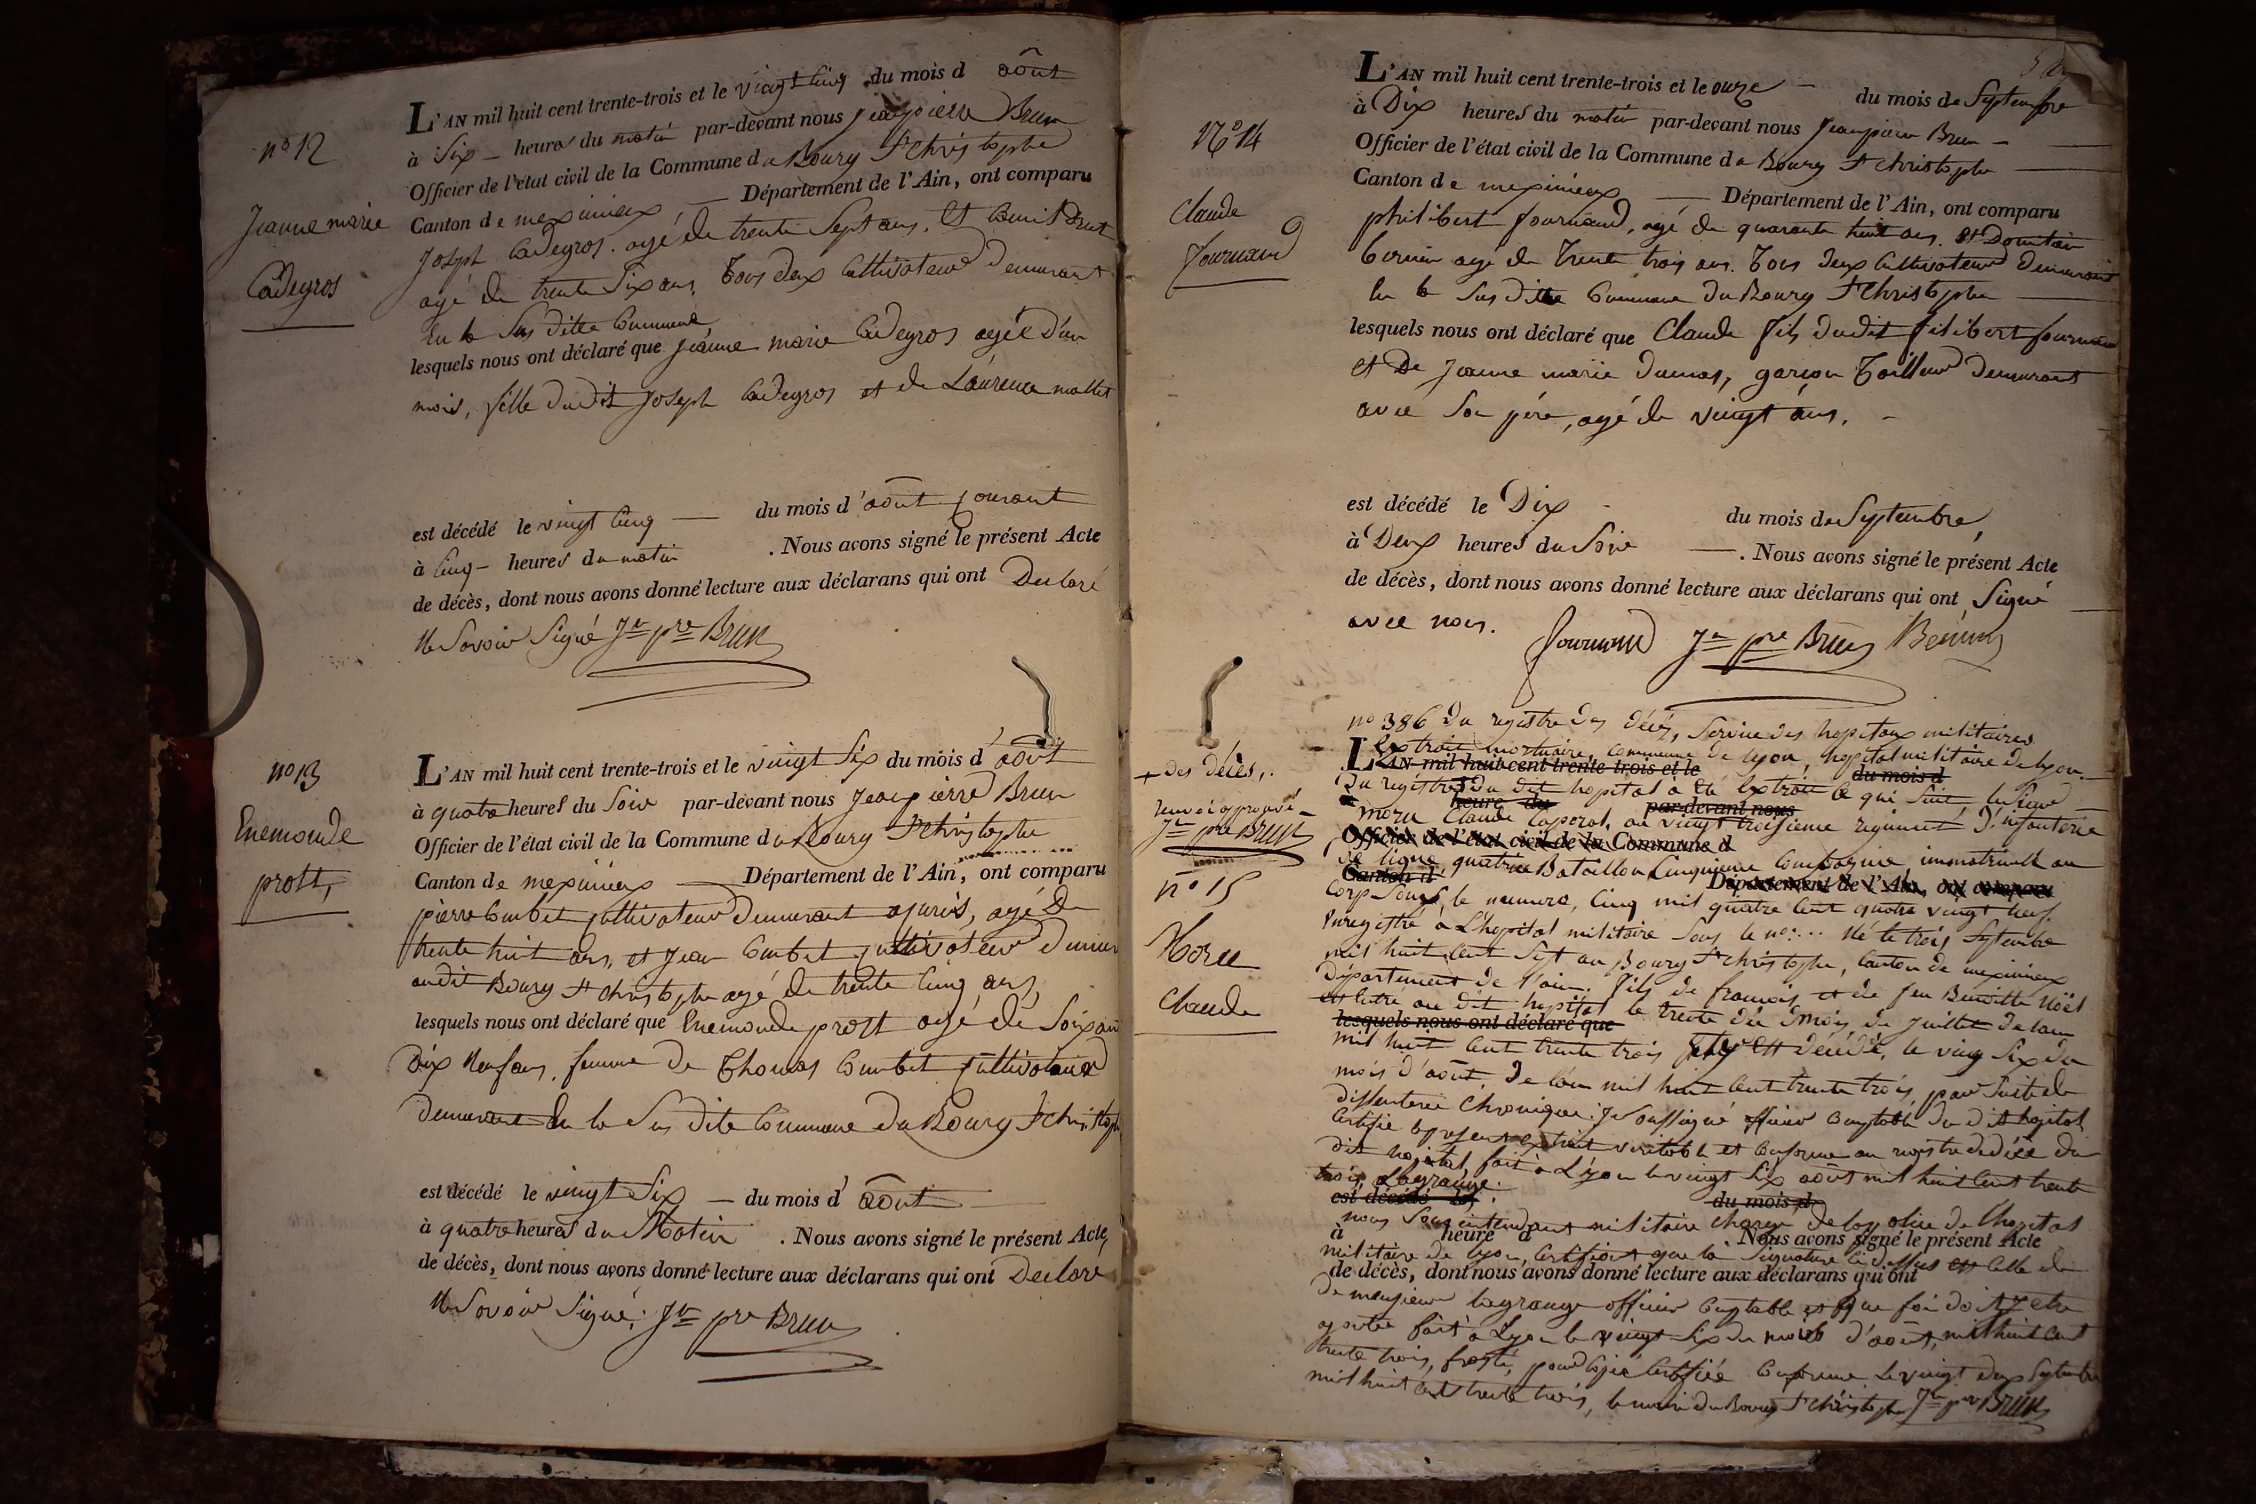 n° 12
Jeanne marie
Cadegros
L'AN mil huit cent trente-trois et le vingt cinq du mois d août
à Six heures du matin par-devant nous jean pierre Brun
Officier de l'état civil de la Commune de Bourg St Christophe
Canton de meximieux Département de l'Ain, ont comparu
Joseph Cadegros. agé de trente Sept ans, Et
agé de trente Six ans, tous deux Cultivateurs demeurant
En la Sus ditte Commune,
lesquels nous ont déclaré que jeanne marie Cadegros agée d'un
mois, fille dudit Joseph Cadegros et de Laurence mallet
est décédé le vingt cinq du mois d'août courant
à cinq heures du matin . Nous avons signé le présent Acte
de décès, dont nous avons donné lecture aux déclarans qui ont Declaré
Ne Savoir Signé Jn pre Brun
n° 13
Enemonde
prost,
L'AN mil huit cent trente-trois et le vingt Six du mois d'août
à quatre heures du Soir par-devant nous jean pierre Brun
Officier de l'état civil de la Commune de Bourg St Christophe
Canton de meximieux Département de l'Ain, ont comparu
pierre Combet cultivateur demeurant, agé De
trente huit ans, et jean Combet cultivateur demeur
audit Bourg St Christophe agé de trente Cinq ans,
lesquels nous ont déclaré que Enemonde prost agé de Soixante
Dix Neuf ans, femme de Thomas Combet cultivateur
demeurant En la Sus dite Commune du Bourg St Christophe
est décédé le vingt Six du mois d'août
à quatre heures du Matin . Nous avons signé le présent Acte,
de décès, dont nous avons donné lecture aux déclarans qui ont Declaré
Ne Savoir Signé. Jn pre Brun
N° 14
Claude
Fournand
L'AN mil huit cent trente-trois et le onze du mois de Septembre
à Dix heures du matin par-devant nous Jean pierre Brun
Officier de l'état civil de la Commune de Bourg St Christophe
Canton de meximieux Département de l'Ain, ont comparu
philibert fournand, agé de quarante huit ans. Et
agé de Trente trois ans. Tous deux Cultivateurs Demeurant
En la Sus ditte Commune du Bourg St Christophe
lesquels nous ont déclaré que Claude fils dudit filibert fournand
et De Jeanne marie Dumas, garçon Tailleur demeurant
avec Son père, agé de vingt ans.
est décédé le Dix du mois de Septembre,
à Deux heures du Soir . Nous avons signé le présent Acte
de décès, dont nous avons donné lecture aux déclarans qui ont Signé
avec nous.
fournand Jn pre Brun
+ des décès,
renvoi approuvé
Jn pre Brun
n° 15
Moru
Claude
n° 386 du registre des décès, Service des hopitaux militaires
Extrait mortuaire, commune de lyon, hopital militaire de lyon.
L'AN mil huit cent trente-trois et le du mois d
Du registre + Du dit hopital a été Extrait ce qui Suit, le Sieur
heure du par-devant nous
moru Claude Caporal, au vingt troisieme regiment D'infanterie
Officier de l'état civil de la Commune d
De ligne quatrieme Bataillon Cinquieme Compagnie immatriculé au
Canton d Département de l'Ain, ont comparu
Corp Sous le numero, Cinq mil quatre Cent quatre vingt neuf.
Enregistré a L'hopital militaire Sous le n°.... Né le trois Septembre
mil huit Cent Sept au Bourg St Christophe, Canton de meximieux
Département de l'ain. fils de francois et de feu Benoitte Noël
est Entré au dit hopital le trente du mois de Juillet de l'an
lesquels nous ont déclaré que
mil huit Cent trente trois est décédé, le vingt Six du
mois d'août, De l'an mil huit Cent trente trois, par Suite de
dissenterie Chronique. Je Soussigné officier Comptable du dit hopital
Certifie le présent extrait véritable et Conforme au registre de décès du
dit hopital, fait à Lyon le vingt Six août mil huit Cent trente
trois Lagrange.
est décédé le du mois d
nous Sous intendant militaire chargé de la police de l'hopital
à heure d . Nous avons signé le présent Acte
militaire de lyon, Certifions que la Signature Ci dessus est Celle de
de décès, dont nous avons donné lecture aux déclarans qui ont
De monsieur lagrange officier Comptable et que foi doit y etre
ajoutée fait à Lyon le vingt Six du mois d'août, mil huit Cent
trente trois, pour Copie Certifiée Conforme Le vingt deux Septembre
mil huit cent trente trois, le maire du Bourg St Christophe Jn pre Brun